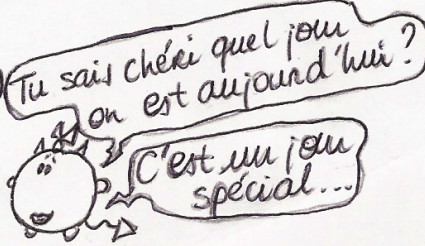 Tu sais chéri quel jour
on est aujourd'hui ?
C'est un jour
spécial...